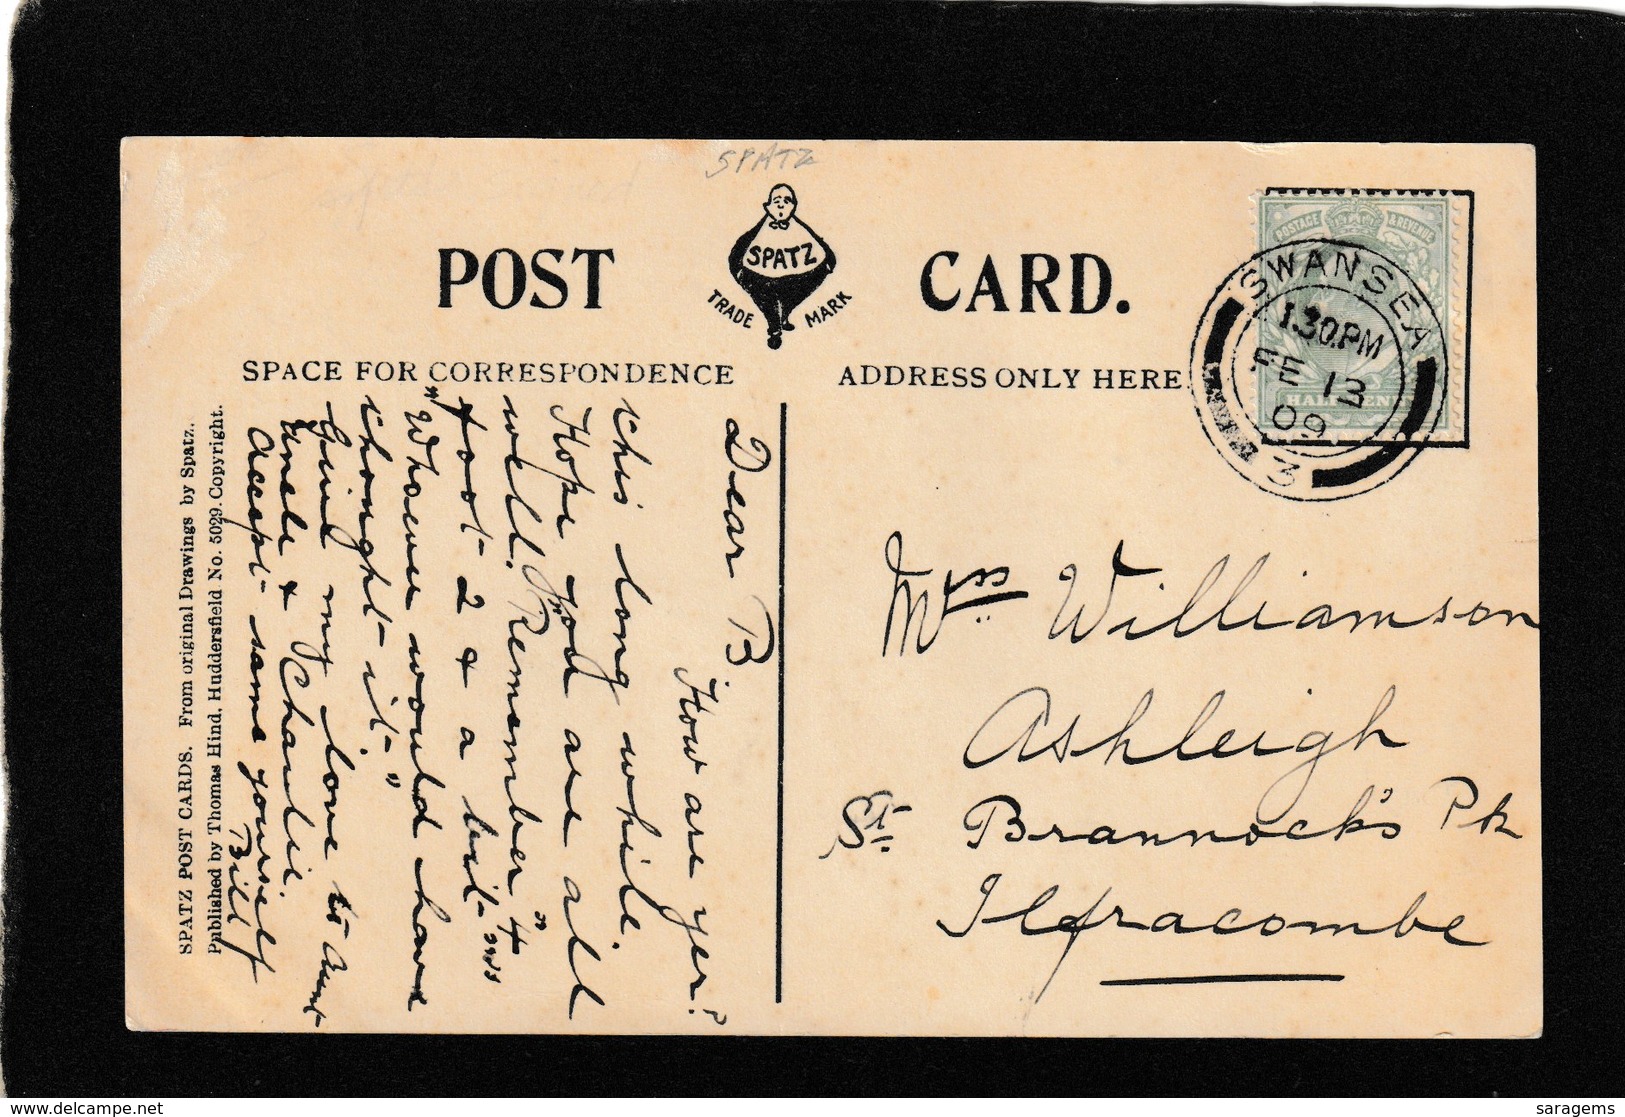 SPATZ
POST CARD.
SPATZ
TRADE MARK
SPACE FOR CORRESPONDENCE
ADDRESS ONLY HERE
POSTAGE & REVENUE
HALFPENNY
SWANSEA
1.30.PM
FE 13
09
3
Dear B
How are yer?
this long while.
Hope you are all
well. Remember "4
foot 2 & a bit"
"Whoever would have
thought it."
Give my love to Aunt
Uncle & Charlie.
Accept some yourself
Bill
SPATZ POST CARDS. From original Drawings by Spatz.
Published by Thomas Hind, Huddersfield No. 5029. Copyright.
Mrs Williamson
Ashleigh
St Brannock's Pk
Ilfracombe
delcampe.net
saragems